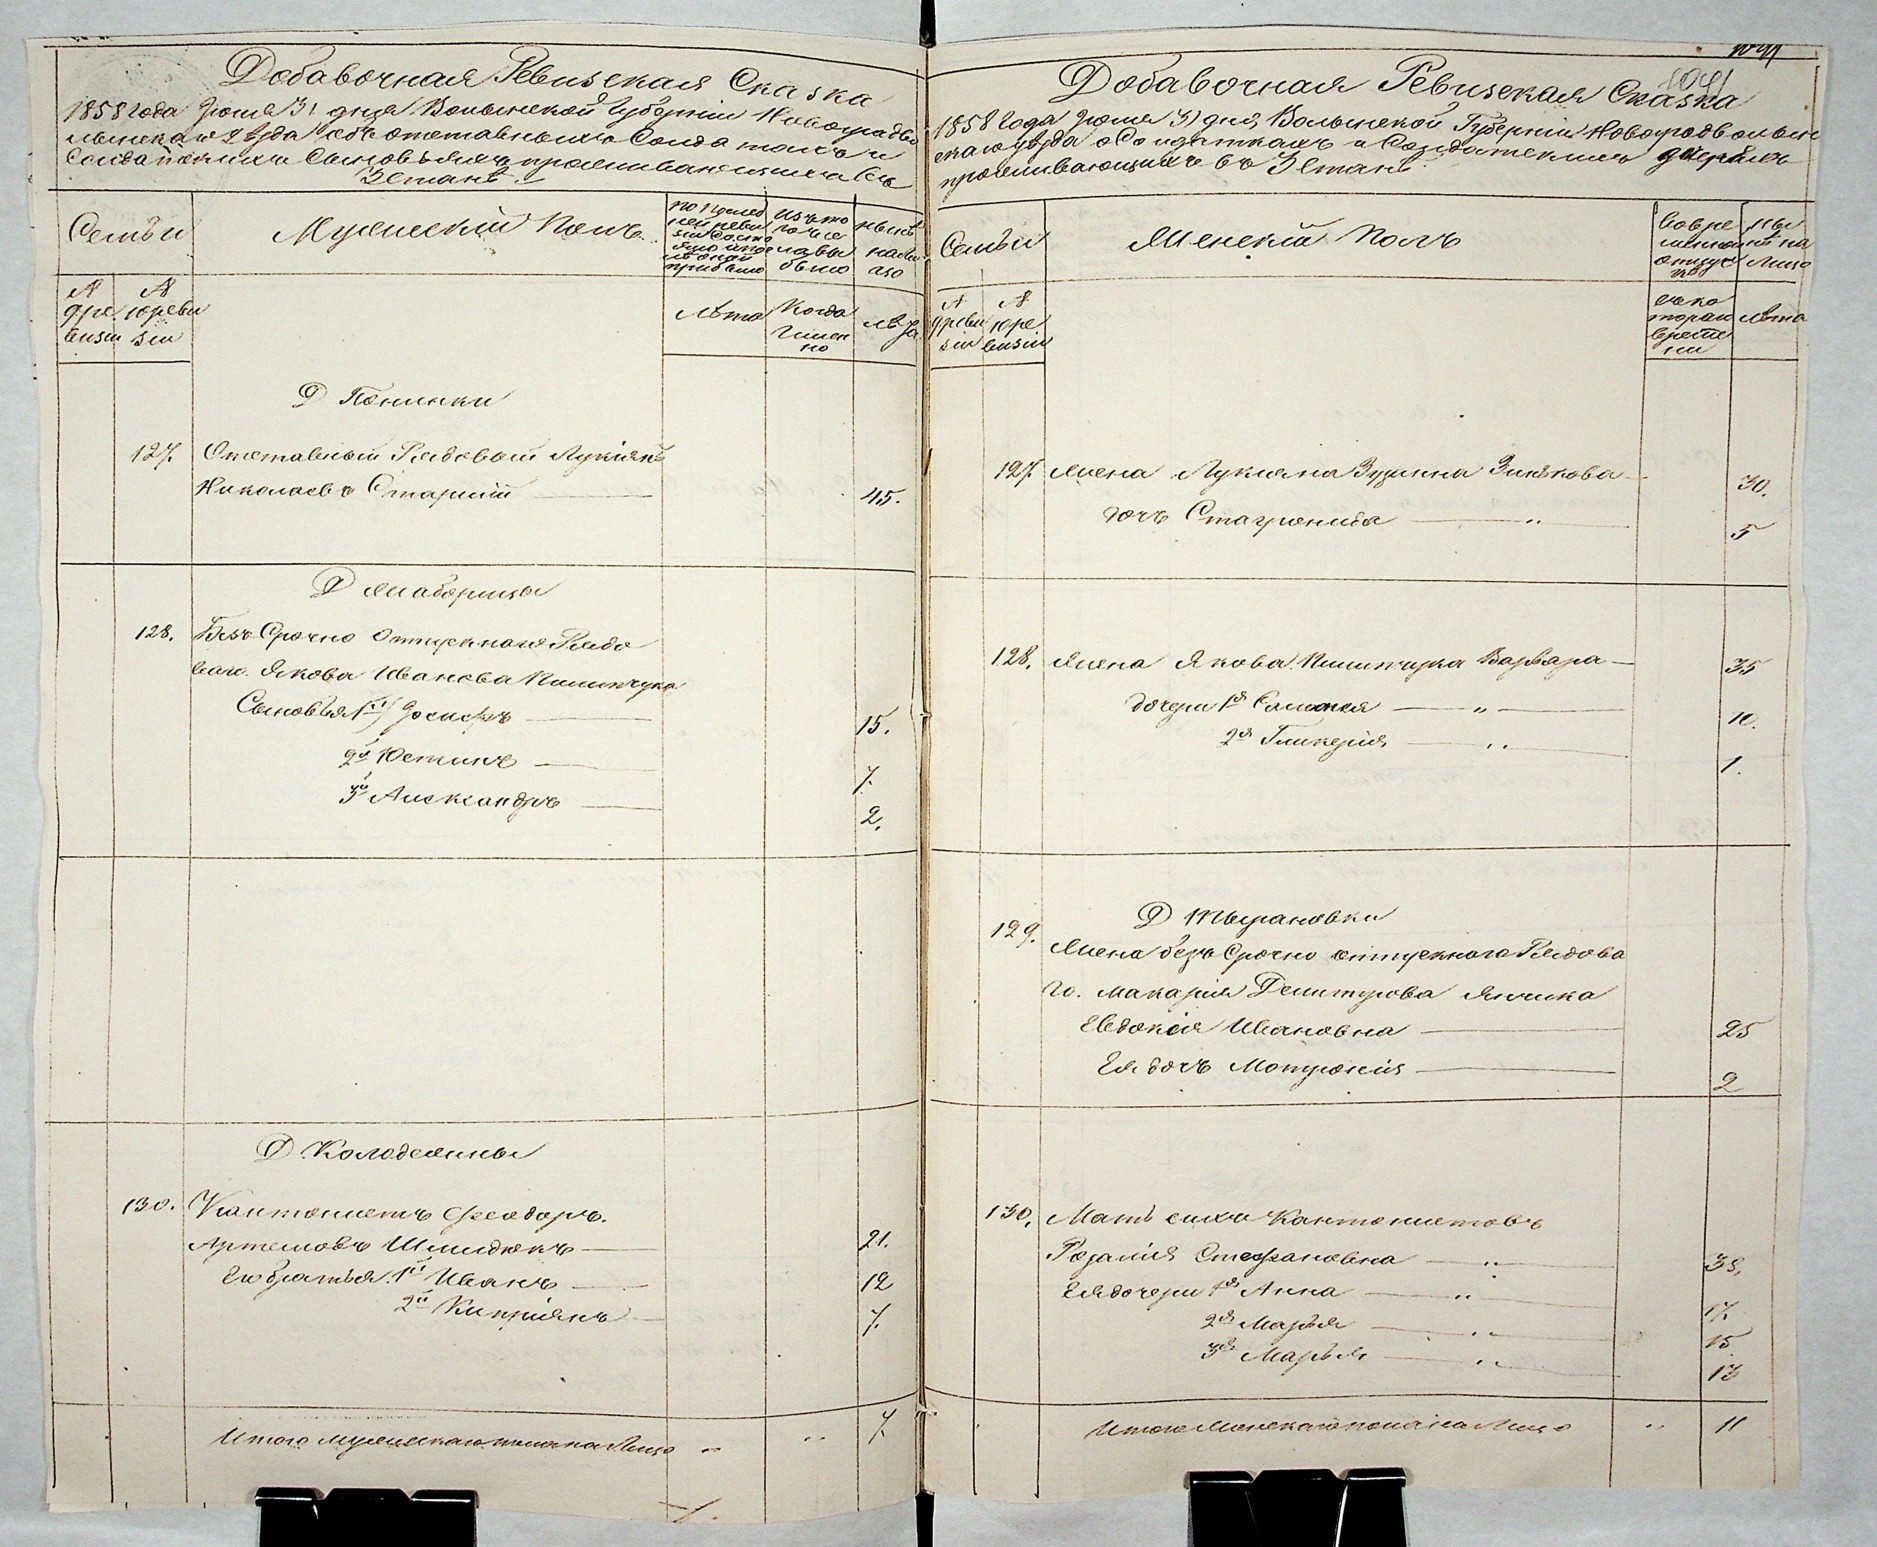 Добавочная Ревизская Сказка
1858 года Іюня 31 дня Волынской Губерніи Новоградво
лынскаго уѣзда объ отставныхъ Солдатахъ и
Солдатскихъ Сыновьяхъ проживающихъ въ
Зетанѣ
Семьи
Мужескій Полъ
по послед
ней реви
зіи состо
яло и пос
лѣ оной
прибыло
Изъ то
го числа
выбыло
нынѣ
на ли
цо
№
дре
визіи
№
юреви
зіи
Лѣта
Когда
Имен
но
Лѣта
Д Понинки
127. Отставный Рядовый Лукіянъ
Николаевъ Старшій 45.
Д Жаборицы
128. Безъ Срочно Отпускнаго Рядо
ваго Якова Иванова Пилипчука
Сыновья 1й Іосифъ 15.
2й Юстинъ 7.
3й Александръ 2.
Д Колодеянны
130. Кантонистъ Феодоръ
Артемовъ Шмидюкъ 21.
Его братья 1й Иванъ 12
2й Кипріянъ 7.
Итого мужескаго пола на Лицо " " 7.
7.
1091
1091
Добавочная Ревизская Сказка
1858 Года Іюня 31 дня Волынской Губерніи Новоградволын
скаго уѣзда о Солдаткахъ и Солдатскихъ дочеряхъ
проживающихъ въ Зетанѣ
Семьи
Женскій Полъ
Во вре
менной
отлуч
кѣ
Ны
нѣ на
Лицо
№
древи
зіи
№
юре
визіи
съ ко
тораго
време
ни
Лѣта
127. Жена Лукіяна Зузанна Зинькова 30.
дочь Стагронида " 5
128. Жена Якова Пилипчука Варвара 35
дочери 1я Соломея " 10.
2я Гликерія " 1.
Д Тырановки
129. Жена безъ Срочно отпускнаго Рядова
го Макарія Демитрова Янчика
Евдокія Ивановна 25
Ея дочь Мотронія 2
130. Мать сихъ Кантонистовъ
Розалія Стефановна " 38.
Ея дочери 1я Анна " 17.
2я Марья " 15
3я Марья " 13
Итого Женскаго пола на Лицо " 11